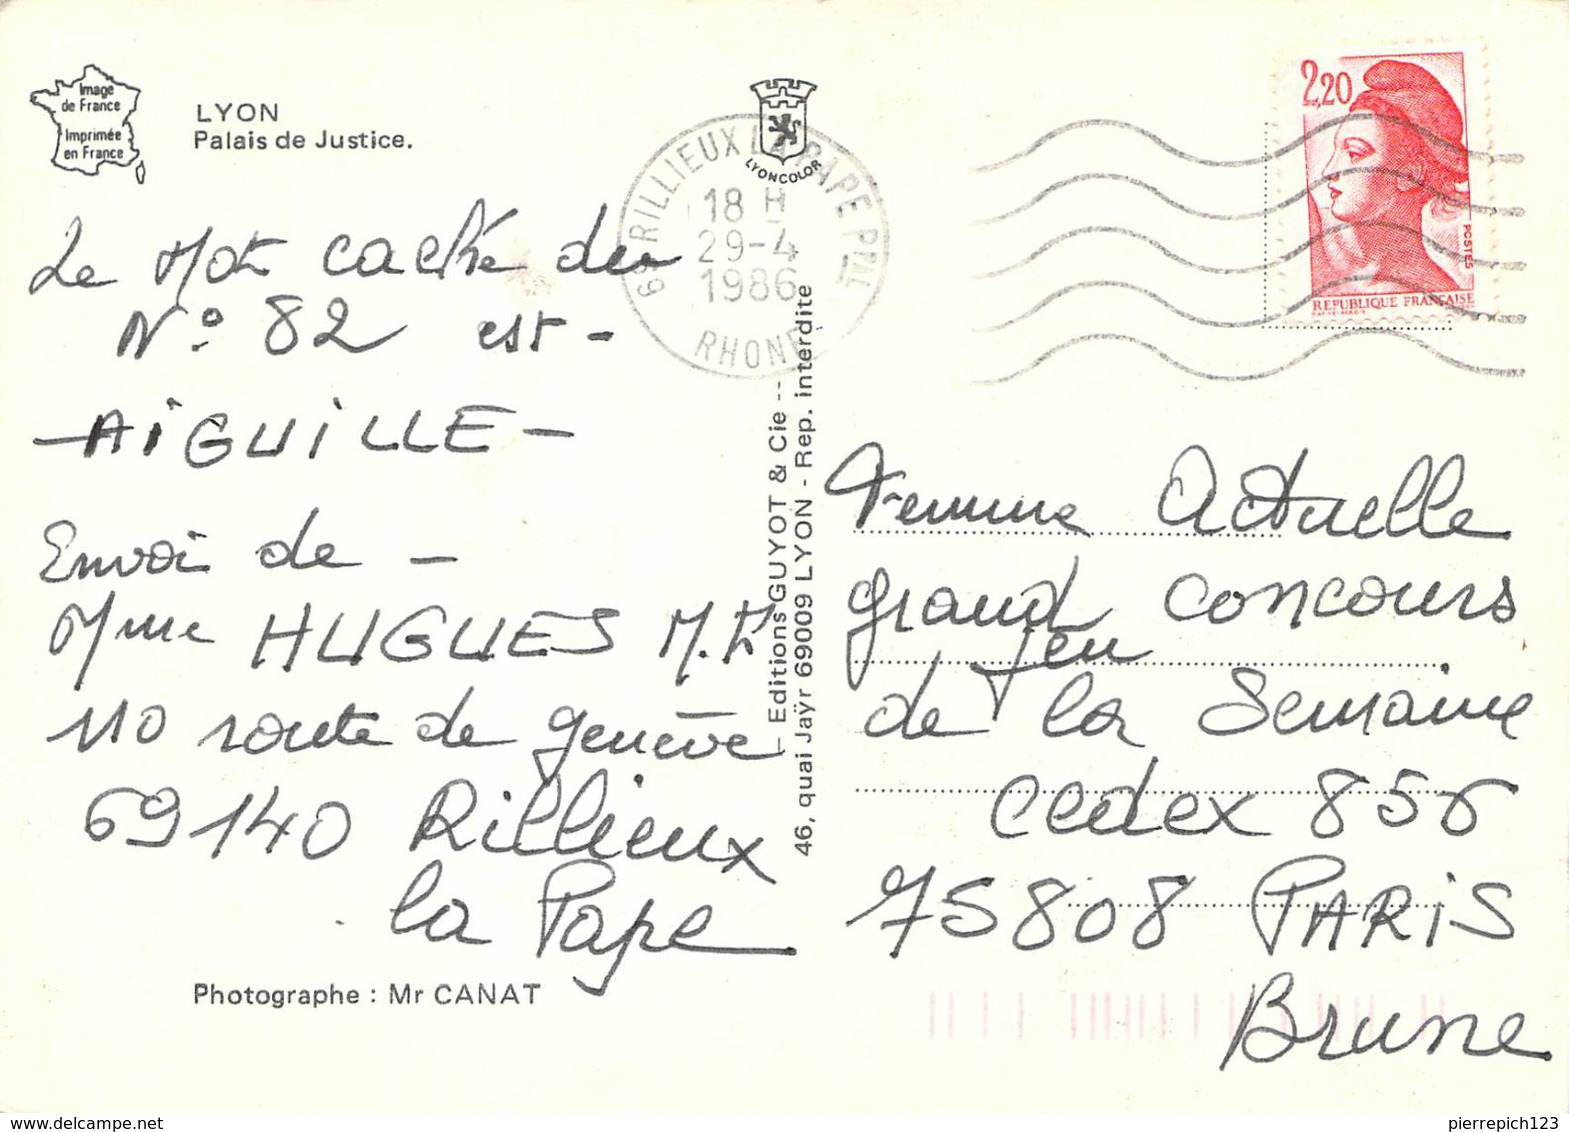 Image
de France
Imprimée
en France
LYON
Palais de Justice.
LYONCOLOR
69 RILLIEUX LA PAPE PPAL
18 H
29-4
1986
RHONE
2,20
POSTES
REPUBLIQUE FRANÇAISE
Le Mot caché du
N° 82 est -
- AIGUILLE -
Envoi de -
Mme HUGUES M.
110 route de genève
69140 Rillieux
la Pape
Photographe : Mr CANAT
Editions GUYOT & Cie --
46, quai Jaÿr 69009 LYON - Rep. interdite
Femme Actuelle
grand concours
jeu
de la Semaine
cedex 856
75808 PARIS
Brune
pierrepich123